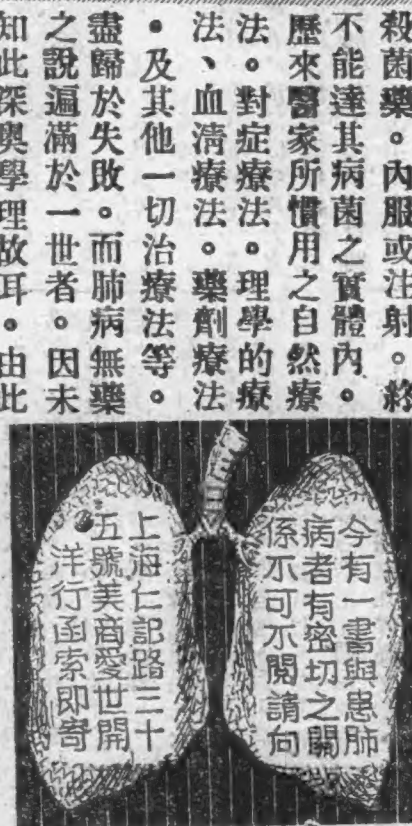 殺菌藥。內服或注射。終
不能達其病菌之實體內。
歷來醫家所慣用之自然療
法。對症療法。理學的療
法、血淸療法。藥劑療法
。及其他一切治療法等。
盡歸於失敗。而肺病無藥
之說遍滿於一世者。因未
知此深奧學理故耳。由此
今有一書與患肺
病者有密切之關
係不可不閱請向
上海仁記路三十
五號美商愛世開
洋行函索即寄